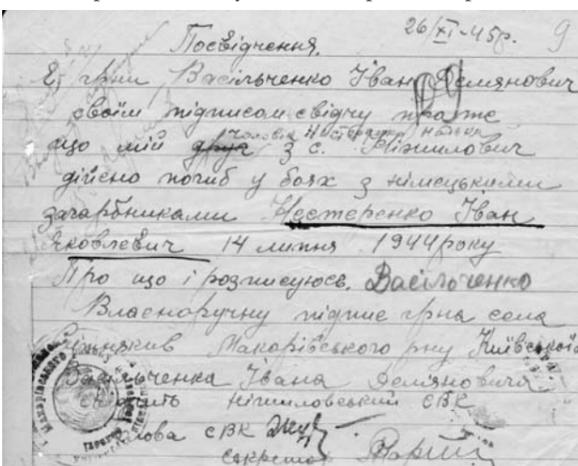 26/XI-45р. 9
Посвідчення.
Я, гр-нин Васільченко Іван Демянович
своїм підписом свідчу про те
що мій друг з с. Ніжилович
дійсно погиб у боях з німецькими
загарбниками Нестеренко Іван
Яковлевич 14 липня 1944 року
Про що і розписуюсь. Васільченко
Власноручну підпис гр-на села
Макарівського р-ну Київської
Васільченка Івана Демяновича
Ніжиловський СВК
Голова СВК
Секретар